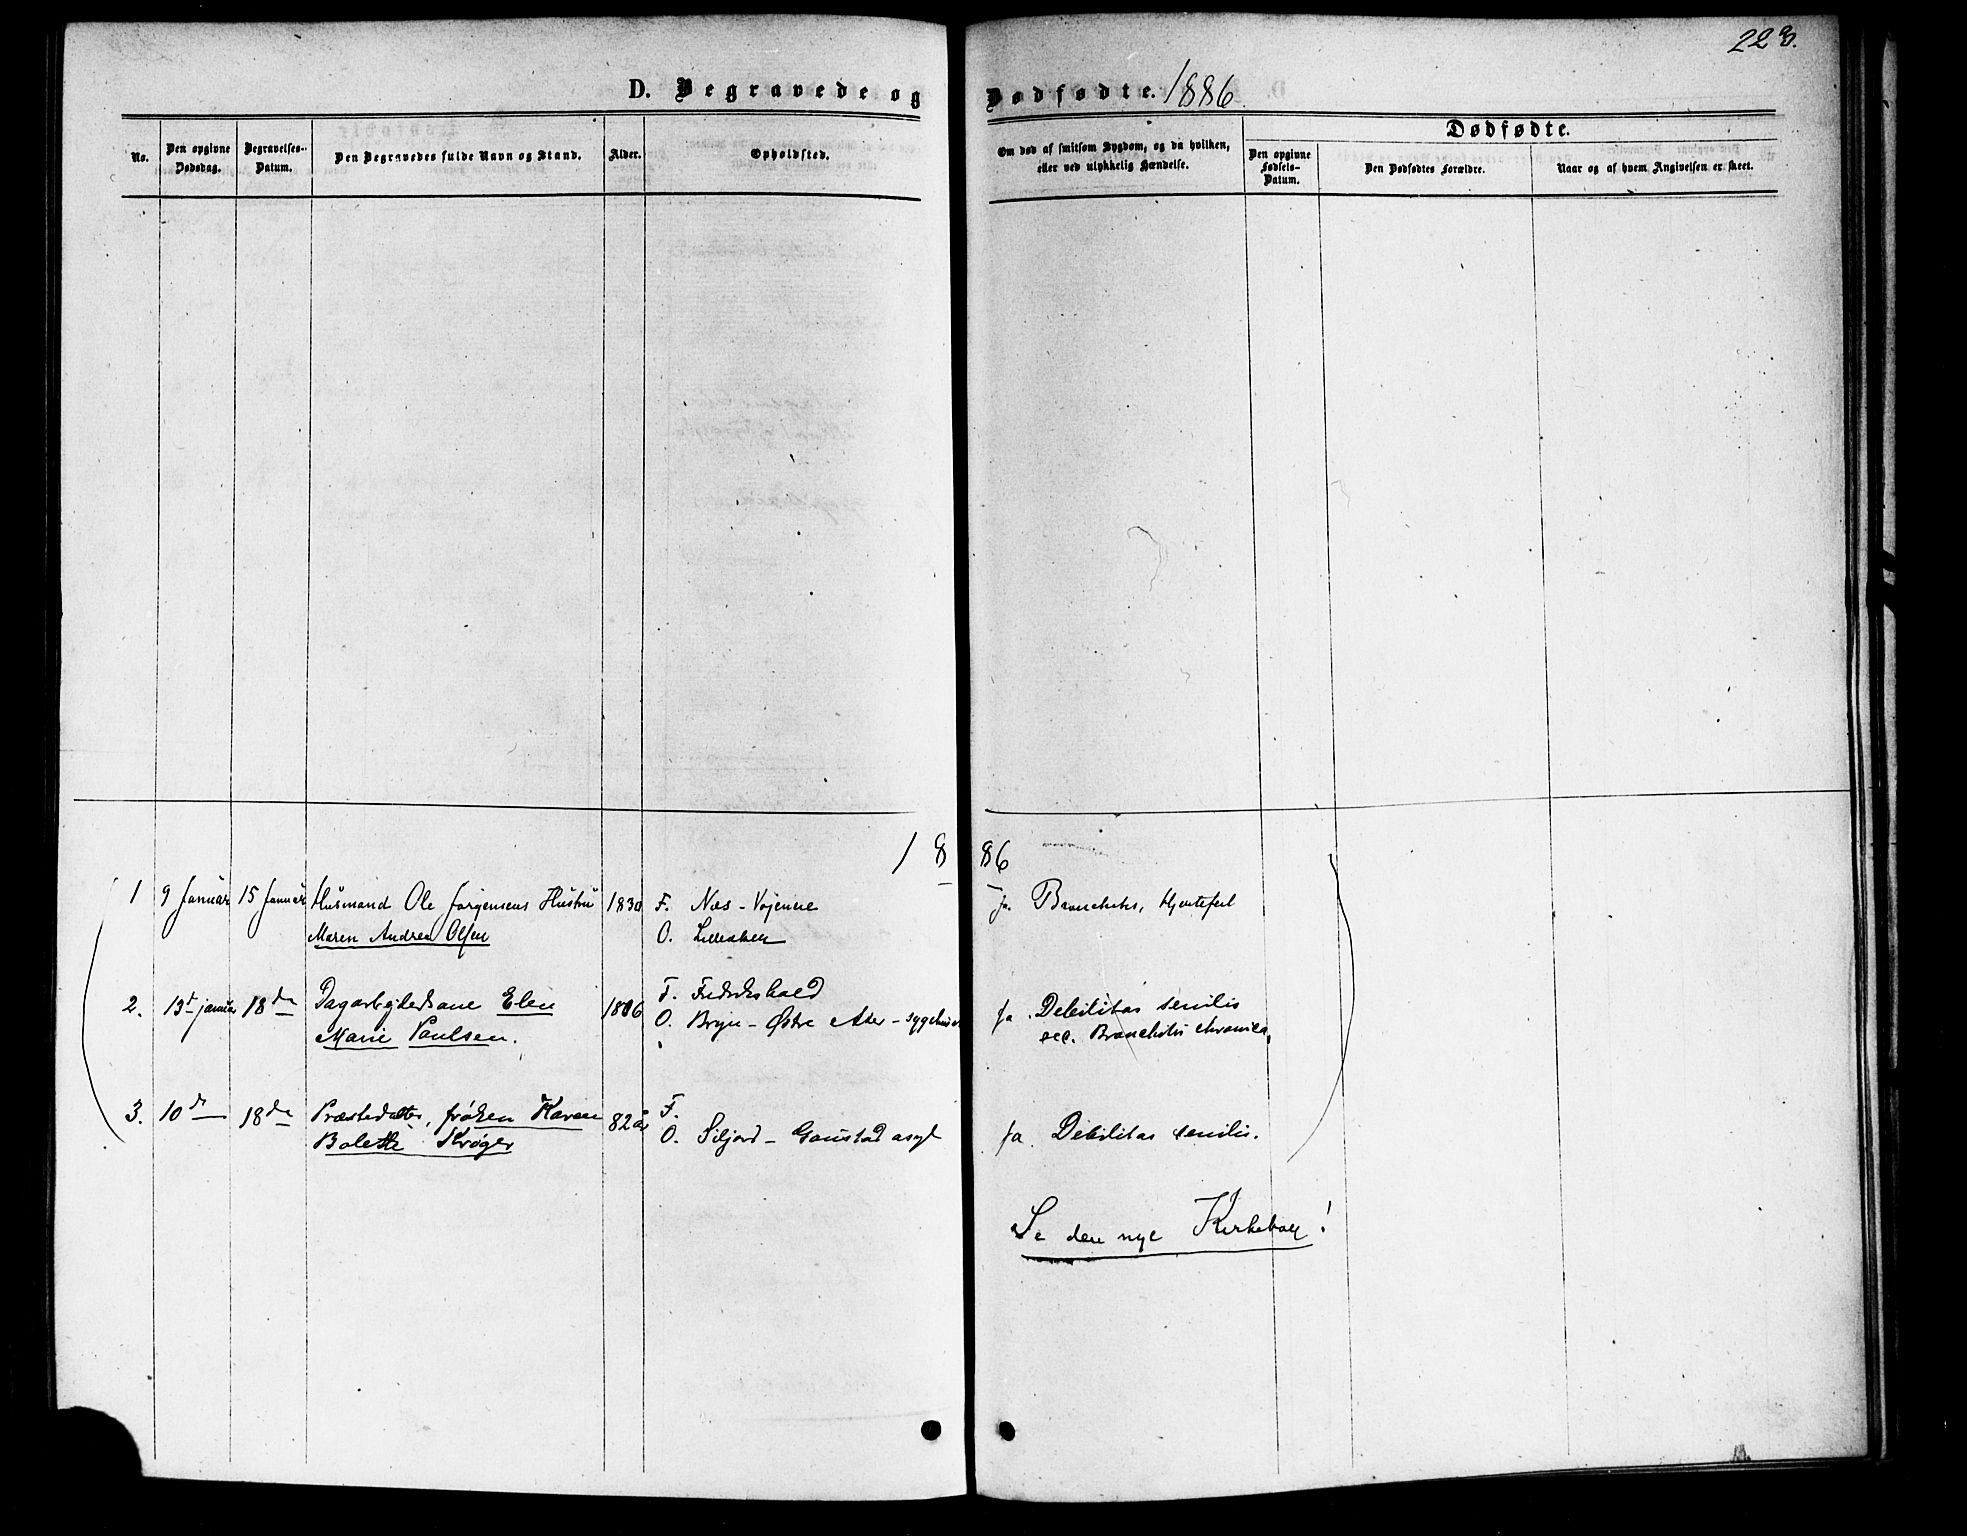 223.
D. Begravede og Dødfødte. 1886
No.
Den opgivne Dødsdag.
Begravelses-Datum.
Den Begravedes fulde Navn og Stand.
Alder.
Opholdsted.
Om død af smitsom Sygdom, og da hvilken, eller ved ulykkelig Hændelse.
Dødfødte.
Den opgivne Fødsels-Datum.
Den Dødfødtes Forældre.
Naar og af hvem Angivelsen er skeet.
1886
1 9 Januar 15 Januar Husmand Ole Jørgensens Hustru 1830 F. Næs - Vøjenene ja. Bronchitis, Hjertefeil
Maren Andrea Olsen O. Lilleaker
2. 13d januar 18de Dagarbejderske Elen 1806 F. Fredrikshald ja. Debilitas senilis
Marie Paulsen. O. Bryn - Østre Aker - sygehus acc. Bronchitis chronica,
3. 10de 18de Præstedatter, frøken Karen 82 år F.
Bolette Krøger O. Siljord - Gaustad asyl ja. Debilitas senilis.
Se den nye Kirkebog!